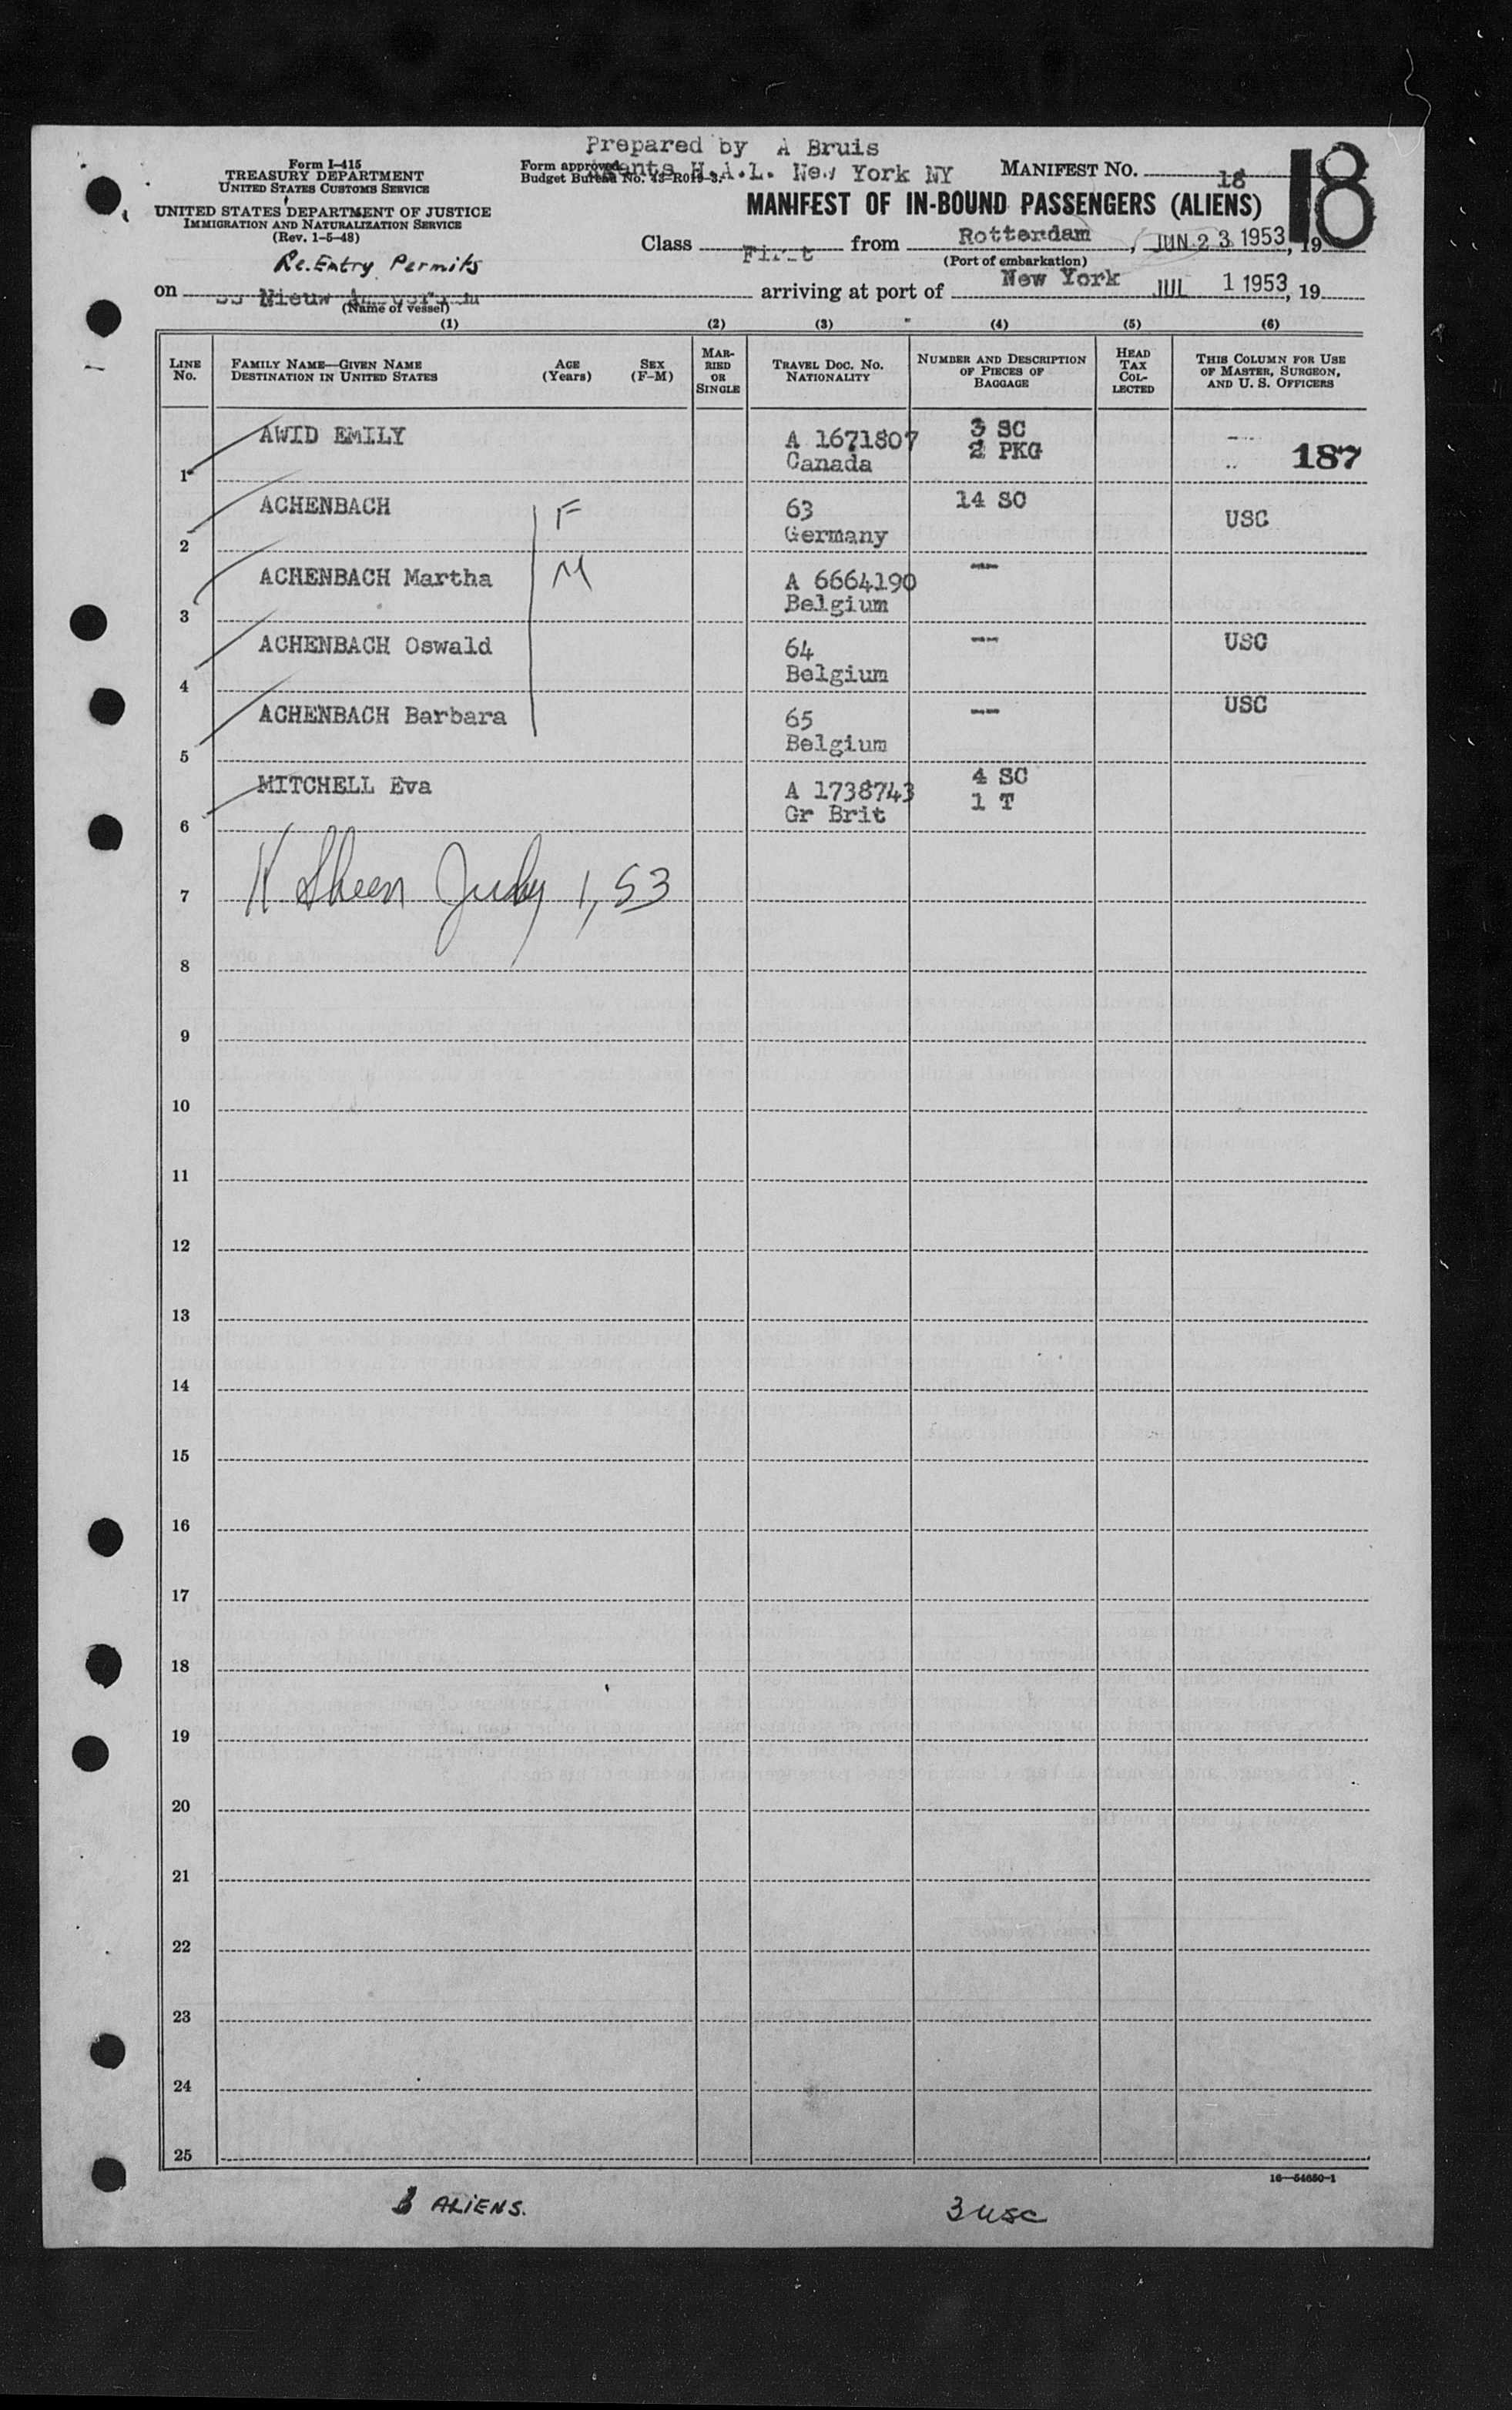 Prepared by A Bruis
Agents H.A.L. New York NY
Form I-415
TREASURY DEPARTMENT
UNITED STATES CUSTOMS SERVICE
UNITED STATES DEPARTMENT OF JUSTICE
IMMIGRATION AND NATURALIZATION SERVICE
(Rev. 1-5-48)
Re.Entry Permits
Form approved.
Budget Bureau No. 43-R019-3.
MANIFEST NO. 18
18
MANIFEST OF IN-BOUND PASSENGERS (ALIENS)
Class First from Rotterdam, JUN 23 1953, 19
(Port of embarkation)
on SS Nieuw Amsterdam arriving at port of New York JUL 1 1953, 19
(Name of vessel)
(1) (2) (3) (4) (5) (6)
LINE No. FAMILY NAME—GIVEN NAME DESTINATION IN UNITED STATES AGE (Years) SEX (F-M) MARRIED OR SINGLE TRAVEL DOC. NO. NATIONALITY NUMBER AND DESCRIPTION OF PIECES OF BAGGAGE HEAD TAX COLLECTED THIS COLUMN FOR USE OF MASTER, SURGEON, AND U. S. OFFICERS
AWID EMILY A 1671807 3 SC
1 Canada 2 PKG 187
ACHENBACH F 63 14 SC USC
2 Germany
ACHENBACH Martha M A 6664190 --
3 Belgium
ACHENBACH Oswald 64 -- USC
4 Belgium
ACHENBACH Barbara 65 -- USC
5 Belgium
MITCHELL Eva A 1738743 4 SC
6 Gr Brit 1 T
7 K Sheen July 1, 53
8
9
10
11
12
13
14
15
16
17
18
19
20
21
22
23
24
25
16—54650-1
3 ALIENS.
3 USC